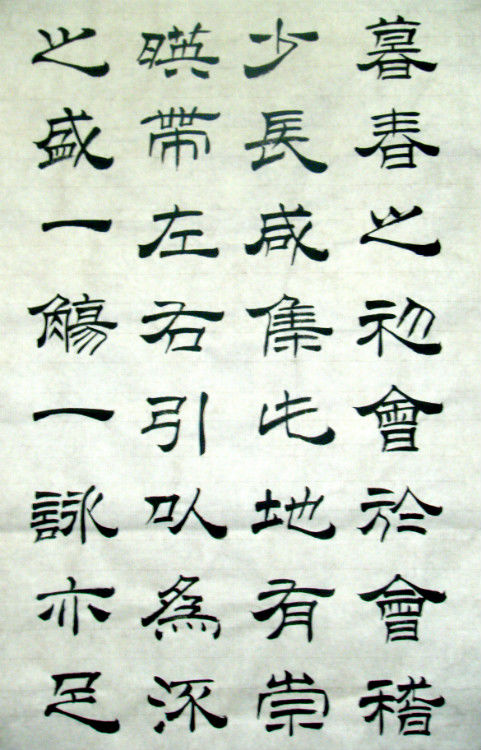 暮春之初會於會稽
少長咸集此地有崇
暎帶左右引以爲流
之盛一觴一詠亦足